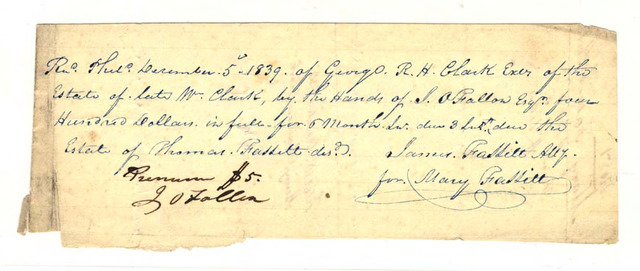 Rec.d Phil.a December 5th 1839 of George R. H. Clark Exer of the
Estate of late Wm Clark, by the Hands of J. O Fallon Esqr. four
Hundred Dollars in full for 6 Month Int. due 3 inst. due the
Estate of Thomas Fassitt des.d. James Fassitt Atty.
Premium $5. for Mary Fassitt
J O Fallon